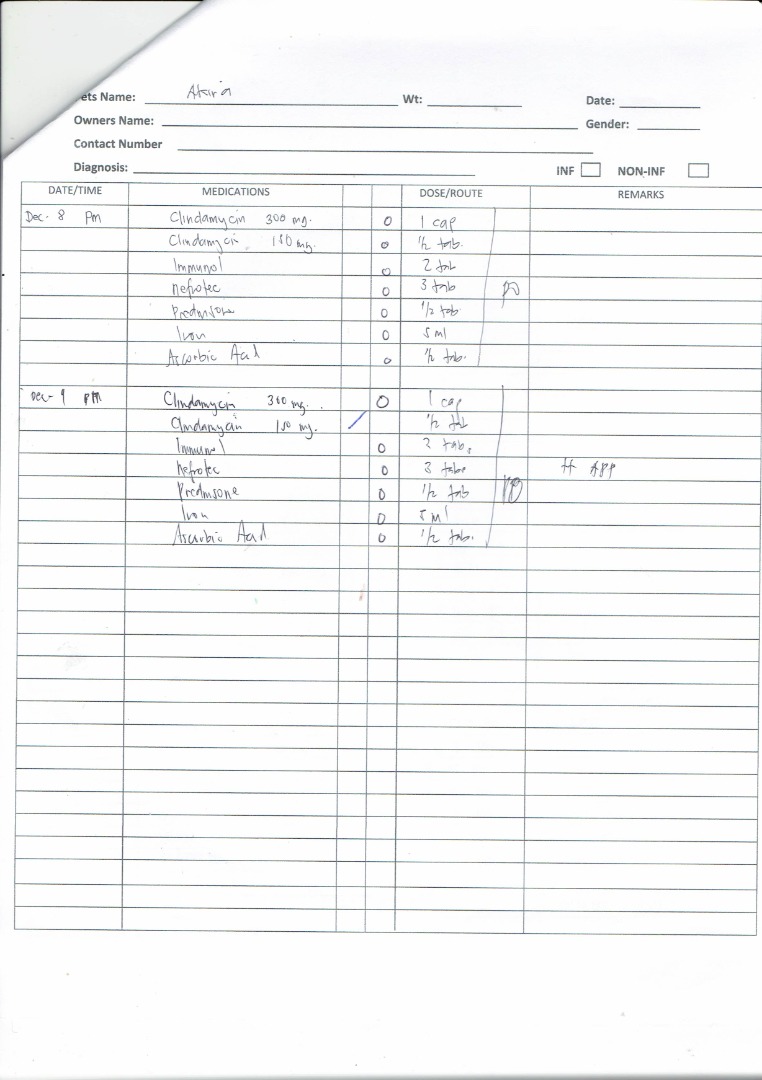 ets Name: Akira Wt: Date:
Owners Name: Gender:
Contact Number
Diagnosis: INF NON-INF
DATE/TIME MEDICATIONS DOSE/ROUTE REMARKS
Dec- 8 pm Clindamycin 300 mg. O 1 cap
Clindamycin 150 mg. O 1/2 tab.
Immunol O 2 tab
nefrotec O 3 tab PO
Prednisone O 1/2 tab
Iron O 5 ml
Ascorbic Acid O 1/2 tab.
Dec- 9 pm Clindamycin 300 mg. O 1 cap
Clindamycin 150 mg. / 1/2 tab
Immunol O 2 tab.
Nefrotec O 3 tabs # APP
Prednisone O 1/2 tab PO
Iron O 5 ml
Ascorbic Acid O 1/2 tab.